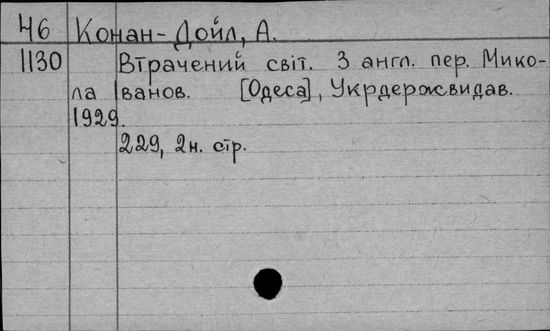 46 Конан-Дойл, А.
1130 Втрачений світ. З англ. пер. Мико-
ла Іванов. [Одеса], Укрдержвидав.
1929.
229, 2н. стр.